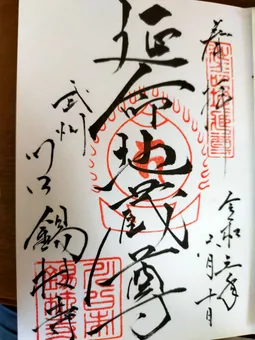 奉拝
令和三年
六月十日
延命地蔵尊
武州
川口 錫杖寺